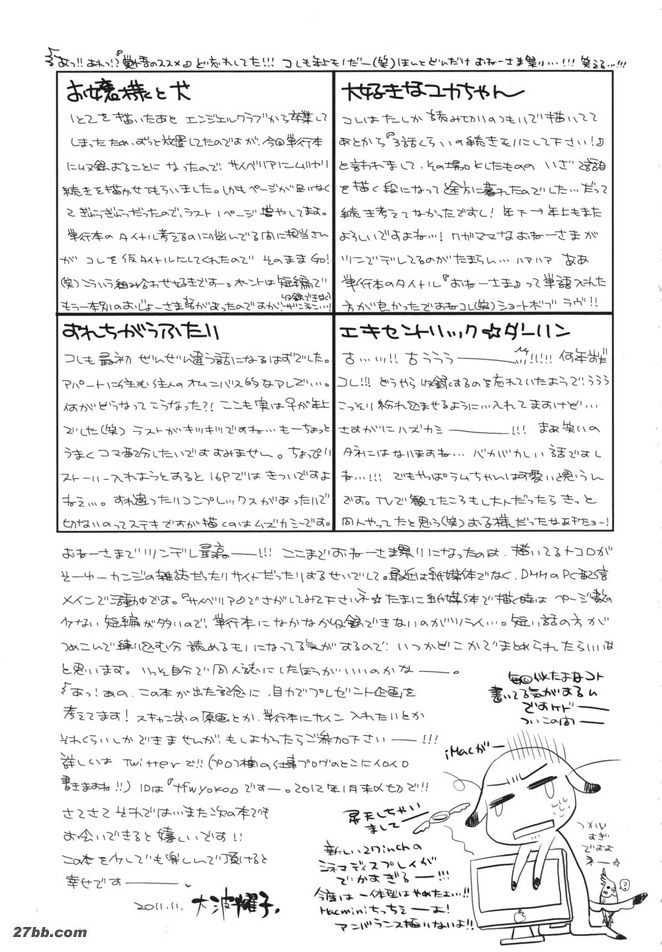 あっ!! あれっ!?『蟻事のススメ』ど忘れしてた!!! コレも年上モノだー(笑)ほんとどんだけ おねーさま祭り…!!! 笑える…!!!
お嬢様と犬
1とこを描いたあと エンジェルクラブから卒業して
しまったため、ずっと放置してたのですが、今回単行本
に収録することに なったので サイベリアにムリヤリ
続きを描かせてもらいました。しかもページが足りなく
てぎゅうぎゅうだったので、ラスト1ページ増やしてます。
単行本のタイトル考えるのに悩んでる間に担当さん
が コレを仮タイトルにしてくれたので そのままGo!
(笑)こういう組み合わせ好きですー。ホントは短編で
もう一本別のおじょーさま話があったのですが
大好きなユカちゃん
コレはたしか読み切りのつもりで描いてて
あとから『3話くらいの続きモノにして下さい!』
と言われまして、その場のとしたものの いざ2話目
を描く段になって途方に暮れたのでした…だって
続き考えてなかったですし! 年下→年上もまた
よろしいですよね…! ワガママなおねーさまが
ツンでデレしてるのがたまらん… ハァハァ ああ
単行本のタイトル『おねーさま』って単語入れた
方が良かったですねコレ(笑)ショートボブ ラヴ!!
すれちがうふたり
コレも最初 ぜんぜん違う話になるはずでした。
アパートに住む住人のオムニバス的なアレでしい…。
何がどうなってこうなった?! ここも実は子が年上
でした(笑) ラストがキツキツですね… もーちょっと
うまくコマ配分したいですすみません。ちょっぴり
ストーリー入れようとすると16Pではきついですよ
ねぇ…。すれ違ったりコンプレックスがあったりで
切ないのってステキですが描くのはムズカシーです。
エキセントリック☆ダーリン
古…ッ!! 古うううーーー!!!!! 何年前だ
コレ!!! どうやら収録するのを忘れていたようで!ううう
こっそり紛れ込ませるように…入れてますけど…
さすがにハズカシーーー!!! まあ笑いの
タネにはなりますね… バカバカしい話ですし
ね…!!! でもやっぱラムちゃんは可愛いと思うん
です。TVで観てたころもし大人だったら きっと
同人やってたと思う(笑)
おねーさまでツンデレ最高ーーー!!! ここまでおねーさま祭りになったのは、描いてるトコロが
そーゆーカンジの雑誌だったりサイトだったりするせいでして。最近は紙媒体でなく、DMMのPC配信
メインで活動中です。『サイベリア』でさがしてみて下さいネ☆ たまに紙媒体で描く時は ページ数の
少ない 短編が多いので、単行本になかなか収録できないのがツラい…。短い話の方が
つめこんで練り込む分 読めるモノになってる気がするので いつかどこかでまとめられたらいいな
と思います。いっそ自分で同人誌にしたほうがいいのかなーーー。
あっ! あの、この本が出た記念に、自力でプレゼント企画を
考えてます! スキャン前の原画とか、単行本にサイン 入れたいとか
それくらいしかできませんが、もしよかったらご参加下さいーーー!!!
詳しいは Twitterで!!(プロフ欄の仕事ブログのとこにイロイロ
書きますね!!) IDは『@fwyokoo』ですー。2012年1月末〆切で!!
さてさて それでは…また次の本でも
お会いできると嬉しいです!!
この本を少しでも楽しんで頂けると
幸せですーーー。
2011.11. 大波耀子。
毎回似たよなコト
書いてる気がするん
ですケドー
ついこの間ー
iMacがー
昇天しちゃい
ましてー
新しい27inchの
シネマディスプレイが
でかすぎるーーー!!!
今度は一体型はやめたよ…!!!
Macminiちっちぇーよー!
アンバランス極いないよ!!
つかれ
すぎ
ですよ
ネー☆
?
27bb.com